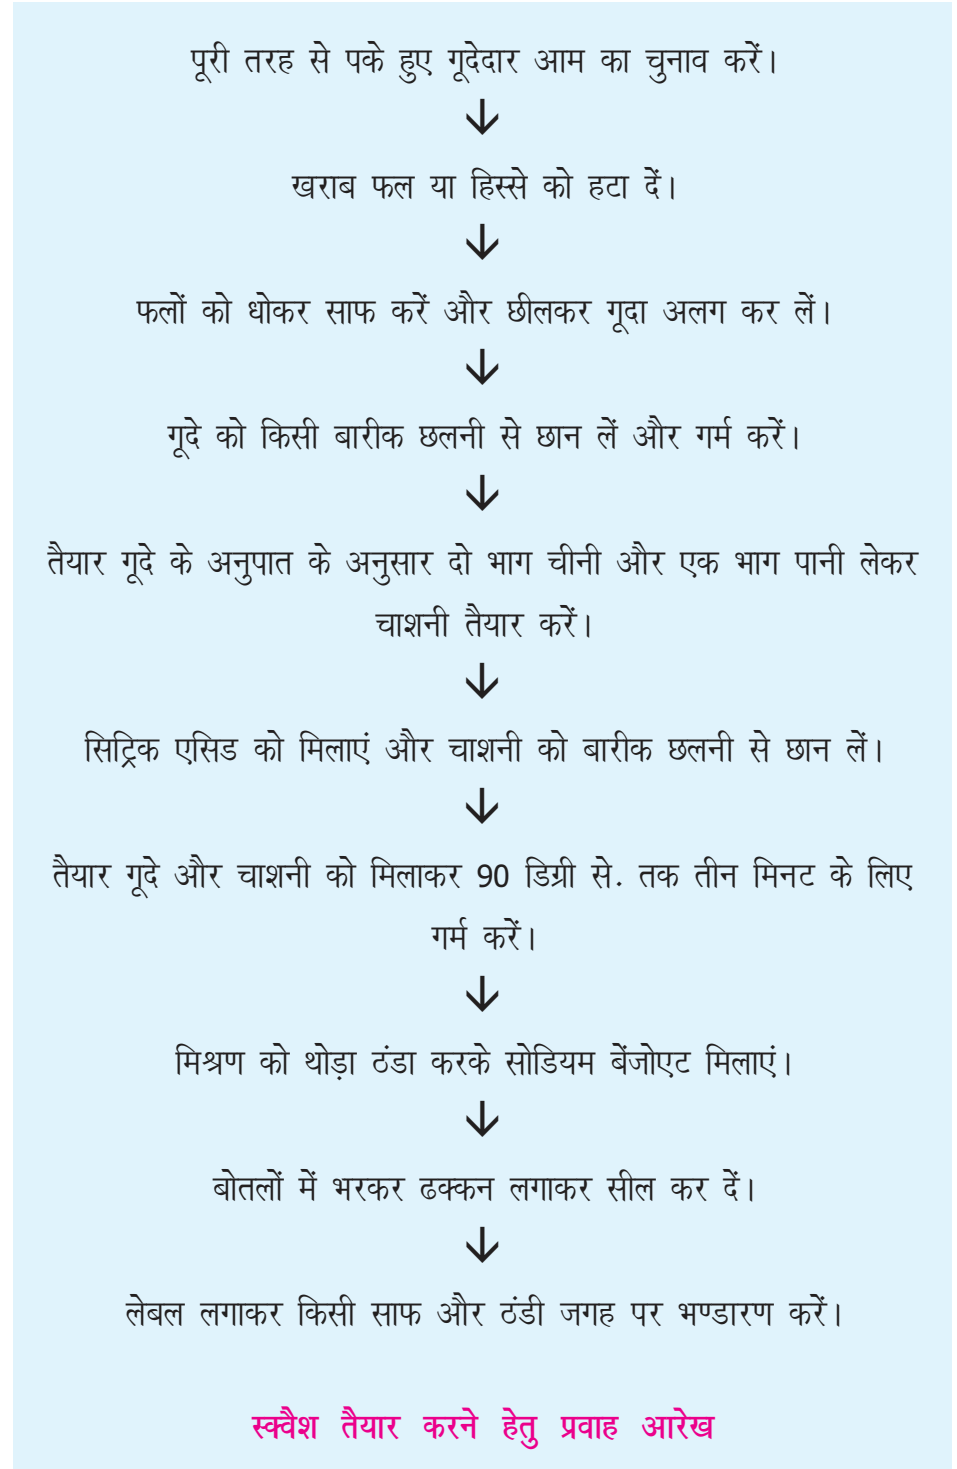 पूरी तरह से पके हुए गूदेदार आम का चुनाव करें।
↓
खराब फल या हिस्से को हटा दें।
↓
फलों को धोकर साफ करें और छीलकर गूदा अलग कर लें।
↓
गूदे को किसी बारीक छलनी से छान लें और गर्म करें।
↓
तैयार गूदे के अनुपात के अनुसार दो भाग चीनी और एक भाग पानी लेकर
चाशनी तैयार करें।
↓
सिट्रिक एसिड को मिलाएं और चाशनी को बारीक छलनी से छान लें।
↓
तैयार गूदे और चाशनी को मिलाकर 90 डिग्री से. तक तीन मिनट के लिए
गर्म करें।
↓
मिश्रण को थोड़ा ठंडा करके सोडियम बेंजोएट मिलाएं।
↓
बोतलों में भरकर ढक्कन लगाकर सील कर दें।
↓
लेबल लगाकर किसी साफ और ठंडी जगह पर भण्डारण करें।
स्क्वैश तैयार करने हेतु प्रवाह आरेख